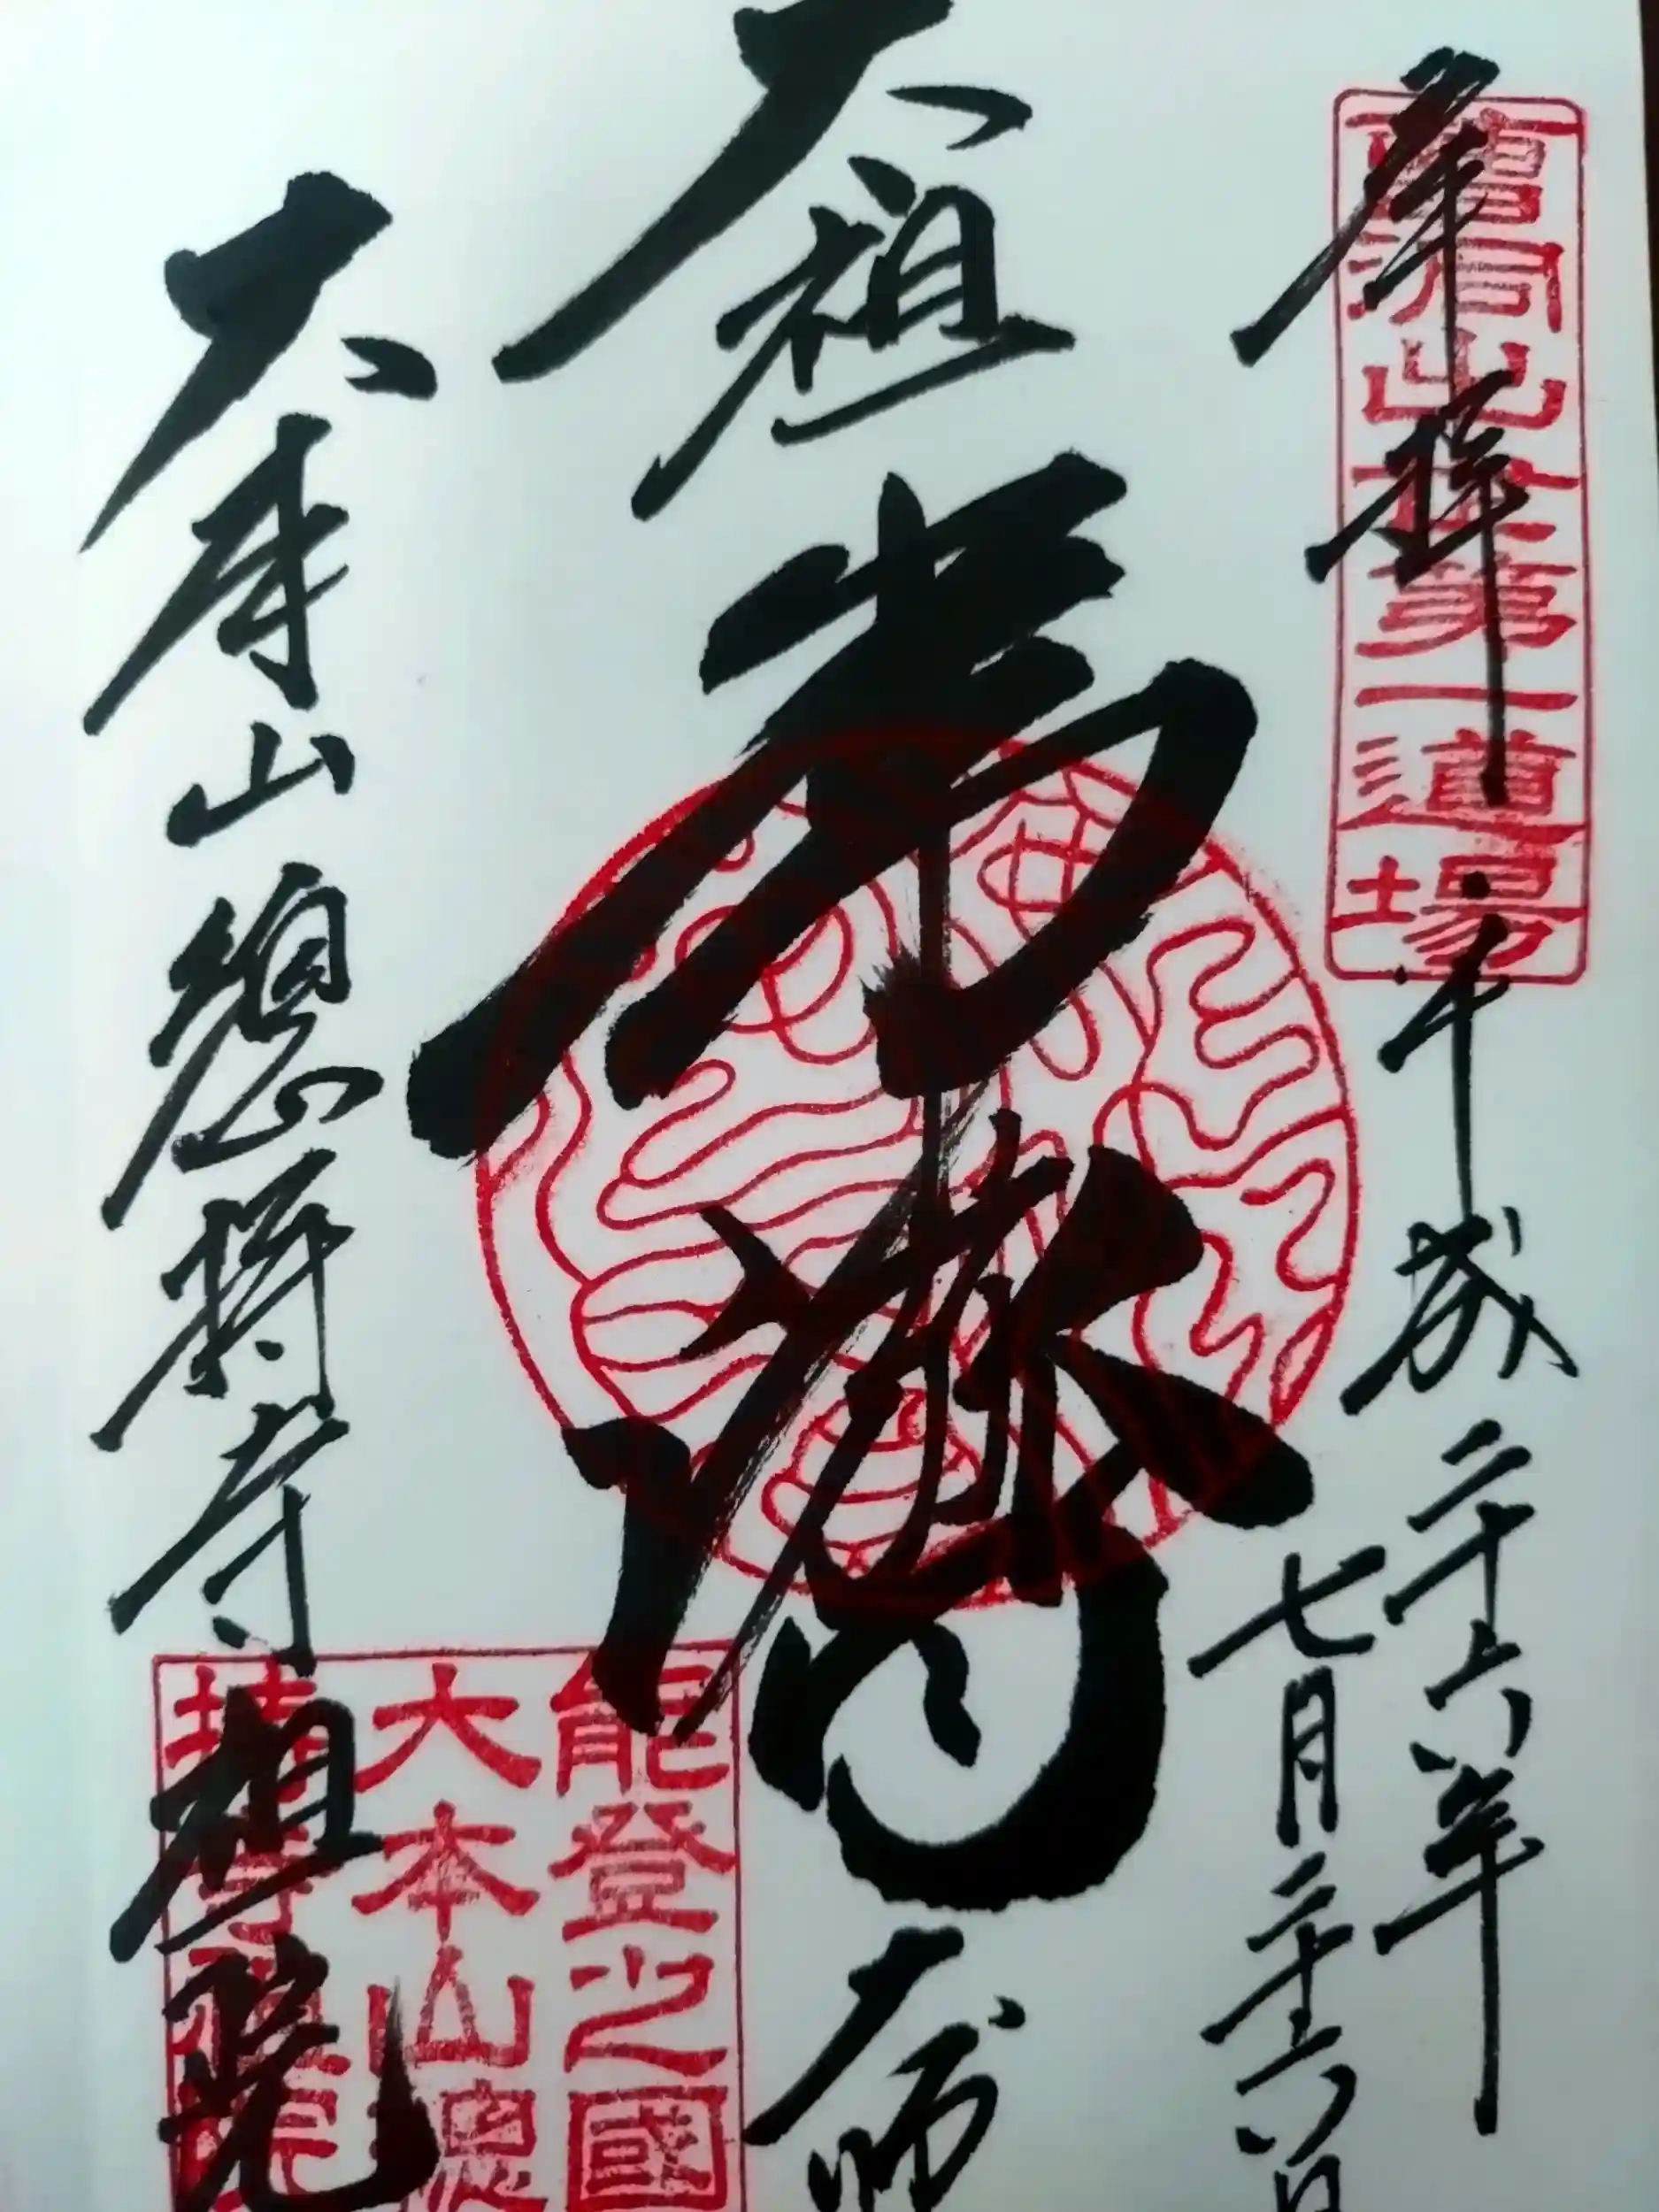 奉拝
平成二十六年
七月二十六日
曹洞出世第一道場
太祖
常濟
大師
大本山總持寺祖院
能登之國
大本山總
持寺祖院